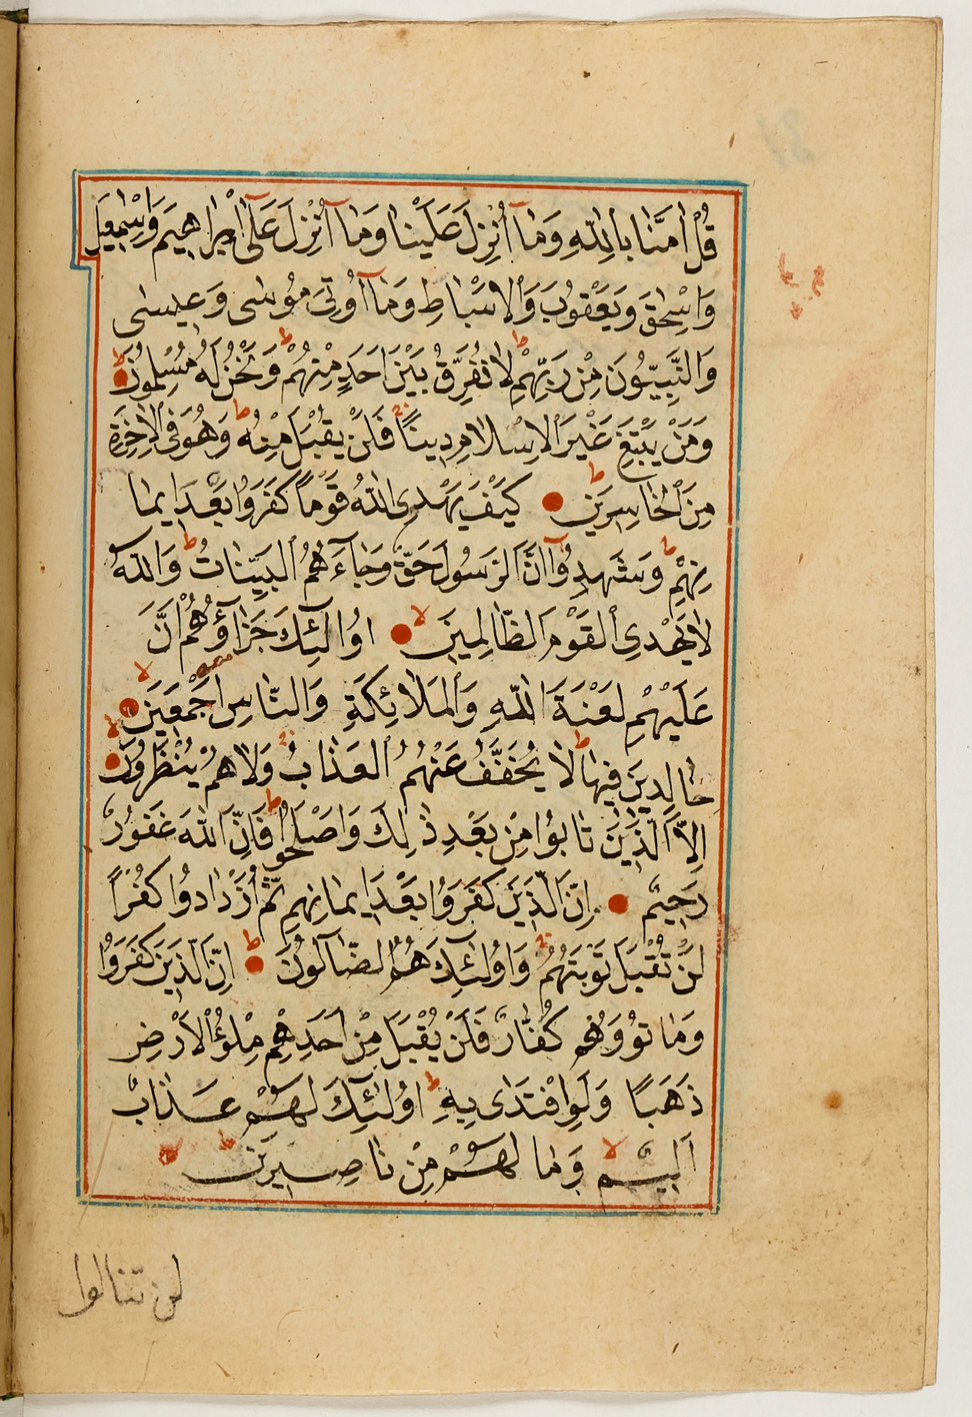 قُلْ اٰمَنَّا بِاللّٰهِ وَمَٓا اُنْزِلَ عَلَيْنَا وَمَٓا اُنْزِلَ عَلٰٓى اِبْرَاهِيمَ وَاِسْمٰعِيلَ
وَاِسْحٰقَ وَيَعْقُوبَ وَالْاَسْبَاطِ وَمَٓا اُو۫تِىَ مُوسٰى وَعِيسٰى
وَالنَّبِيُّونَ مِنْ رَبِّهِمْ ط لَا نُفَرِّقُ بَيْنَ اَحَدٍ مِنْهُمْ ط وَنَحْنُ لَهُ مُسْلِمُونَ ط
وَمَنْ يَبْتَغِ غَيْرَ الْاِسْلَامِ دِينًا فَلَنْ يُقْبَلَ مِنْهُ ط وَهُوَ فِى الْاٰخِرَةِ
مِنَ الْخَاسِرِينَ ط كَيْفَ يَهْدِى اللّٰهُ قَوْمًا كَفَرُوا بَعْدَ اِيمَا
نِهِمْ ط وَشَهِدُٓوا اَنَّ الرَّسُولَ حَقٌّ وَجَٓاءَهُمُ الْبَيِّنَاتُ ط وَاللّٰهُ
لَا يَهْدِى الْقَوْمَ الظَّالِمِينَ لا اُولٰٓئِكَ جَزَٓاؤُهُمْ اَنَّ
عَلَيْهِمْ لَعْنَةَ اللّٰهِ وَالْمَلَائِكَةِ وَالنَّاسِ اَجْمَعِينَ لا
خَالِدِينَ فِيهَا ط لَا يُخَفَّفُ عَنْهُمُ الْعَذَابُ وَلَا هُمْ يُنْظَرُونَ لا
اِلَّا الَّذِينَ تَابُوا مِنْ بَعْدِ ذٰلِكَ وَاَصْلَحُوا ط فَاِنَّ اللّٰهَ غَفُورٌ
رَحِيمٌ اِنَّ الَّذِينَ كَفَرُوا بَعْدَ اِيمَانِهِمْ ثُمَّ ازْدَادُوا كُفْرًا
لَنْ تُقْبَلَ تَوْبَتُهُمْ وَاُولٰٓئِكَ هُمُ الضَّٓالُّونَ ط اِنَّ الَّذِينَ كَفَرُوا
وَمَاتُوا وَهُمْ كُفَّارٌ فَلَنْ يُقْبَلَ مِنْ اَحَدِهِمْ مِلْؤُ الْاَرْضِ
ذَهَبًا وَلَوِ افْتَدٰى بِهِ ط اُولٰٓئِكَ لَهُمْ عَذَابٌ
اَلِيمٌ لا وَمَا لَهُمْ مِنْ نَاصِرِينَ ط
لن تنالوا